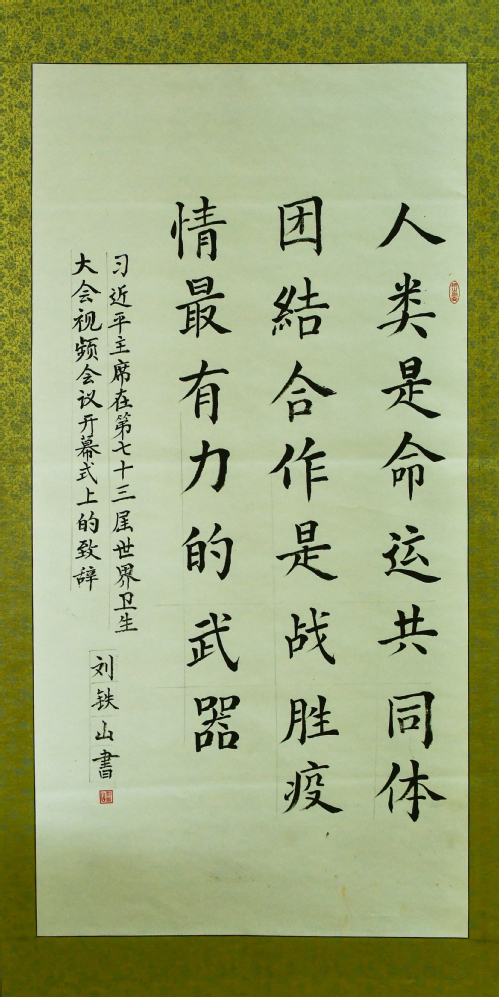 人类是命运共同体
团結合作是战胜疫
情最有力的武器
习近平主席在第七十三届世界卫生
大会视频会议开幕式上的致辞
刘铁山書